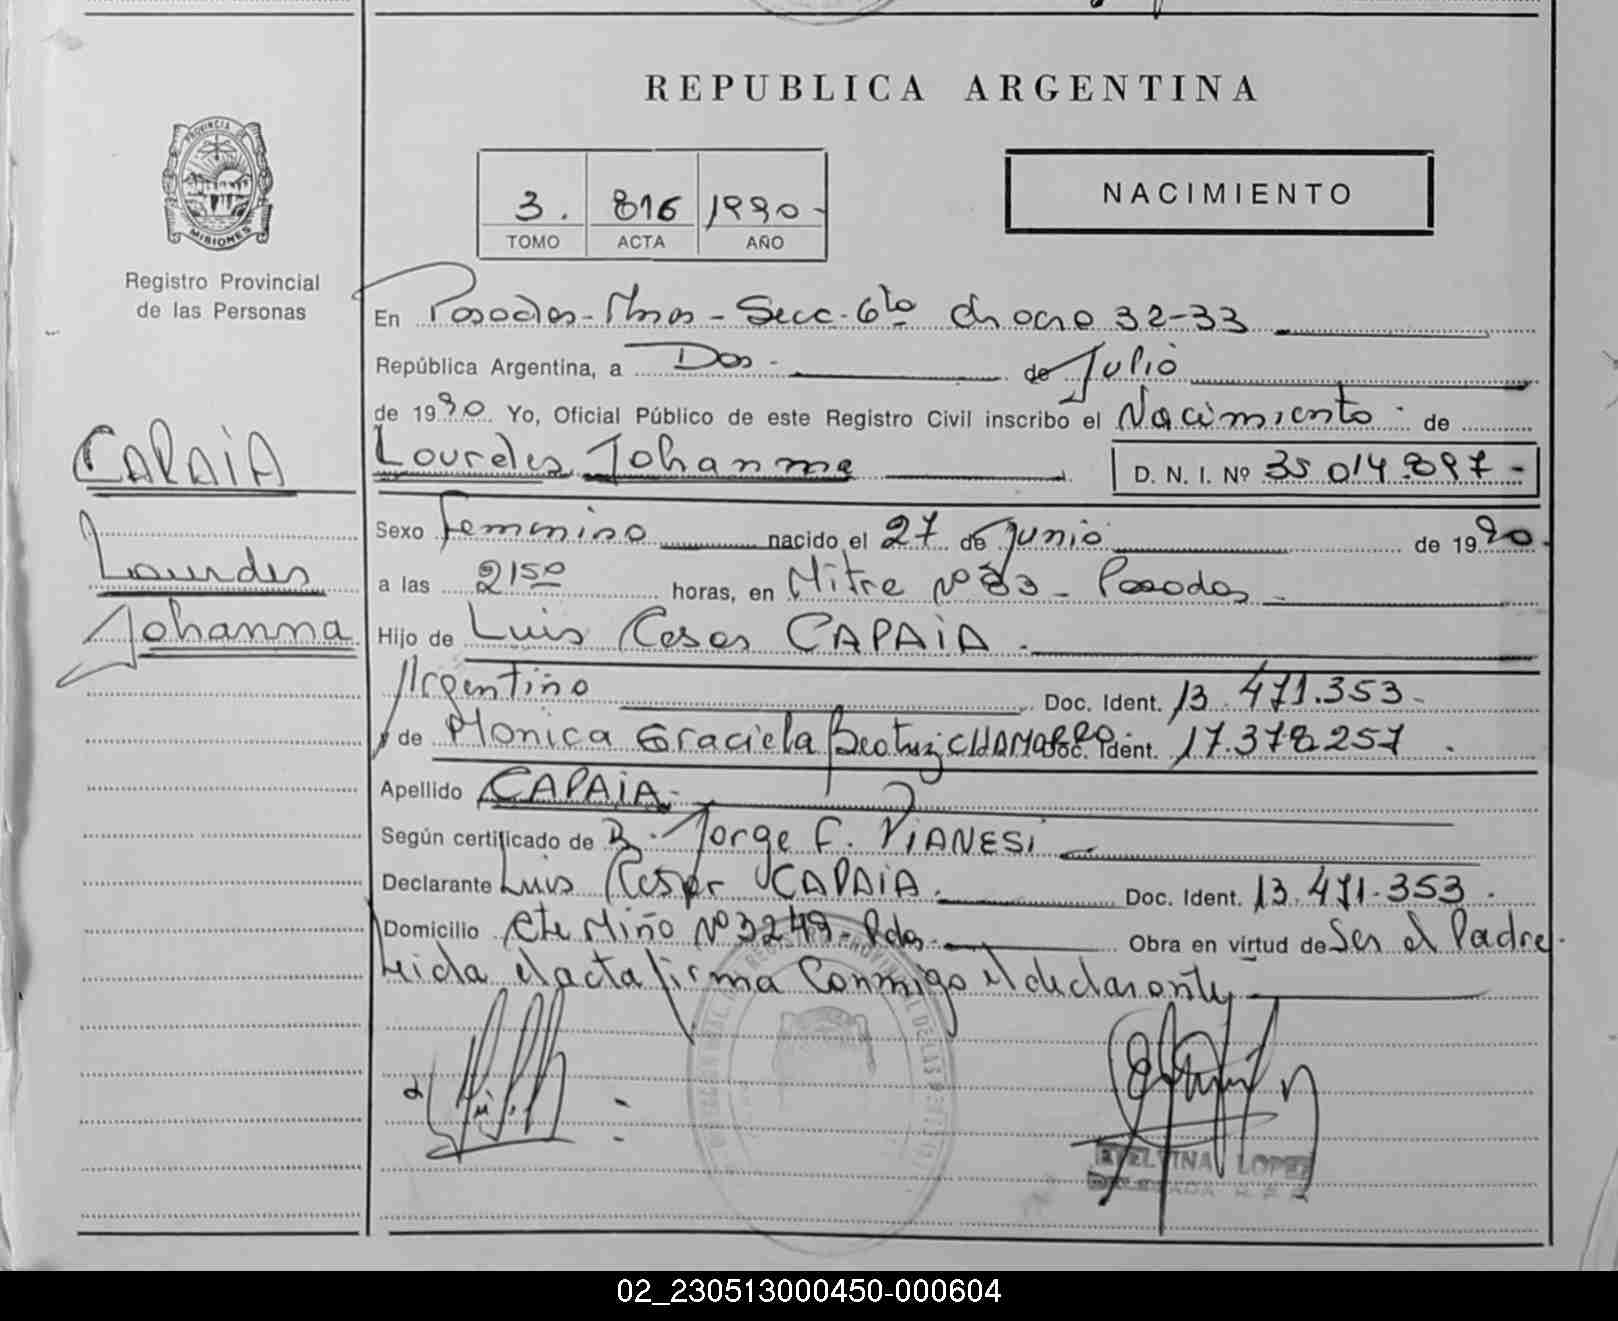 REPUBLICA ARGENTINA
PROVINCIA DE
MISIONES
Registro Provincial
de las Personas
3. 816 1990-
TOMO ACTA AÑO
NACIMIENTO
En Posadas-Mnes-Secc-6ta chacra 32-33
República Argentina, a Dos - de Julio
de 1990. Yo, Oficial Público de este Registro Civil inscribo el Nacimiento - de
CAPAiA
Lourdes Johanna
D. N. I. Nº 35.014.897-
Sexo Femenino nacido el 27 de Junio de 1990.
Lourdes
a las 2150 horas, en Mitre Nº 83 - Posadas -
Johanna
Hijo de Luis Cesar CAPAiA -
Argentino Doc. Ident. 13.471.353-
y de Monica Graciela Beatriz CHAMORRO Doc. Ident. 17.378257.
Apellido CAPAiA-
Según certificado de D. Jorge F. VIANESi
Declarante Luis Cesar CAPAiA. Doc. Ident. 13.471.353.
Domicilio Cte Miño Nº 3249- Pdas. Obra en virtud de Ser el Padre.
Leida el acta firma Conmigo el declarante
ETELVINA LOPEZ
DELEGADA
02_230513000450-000604